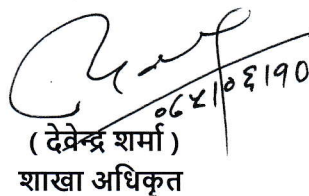 ०६५।०६।१०
( देवेन्द्र शर्मा )
शाखा अधिकृत